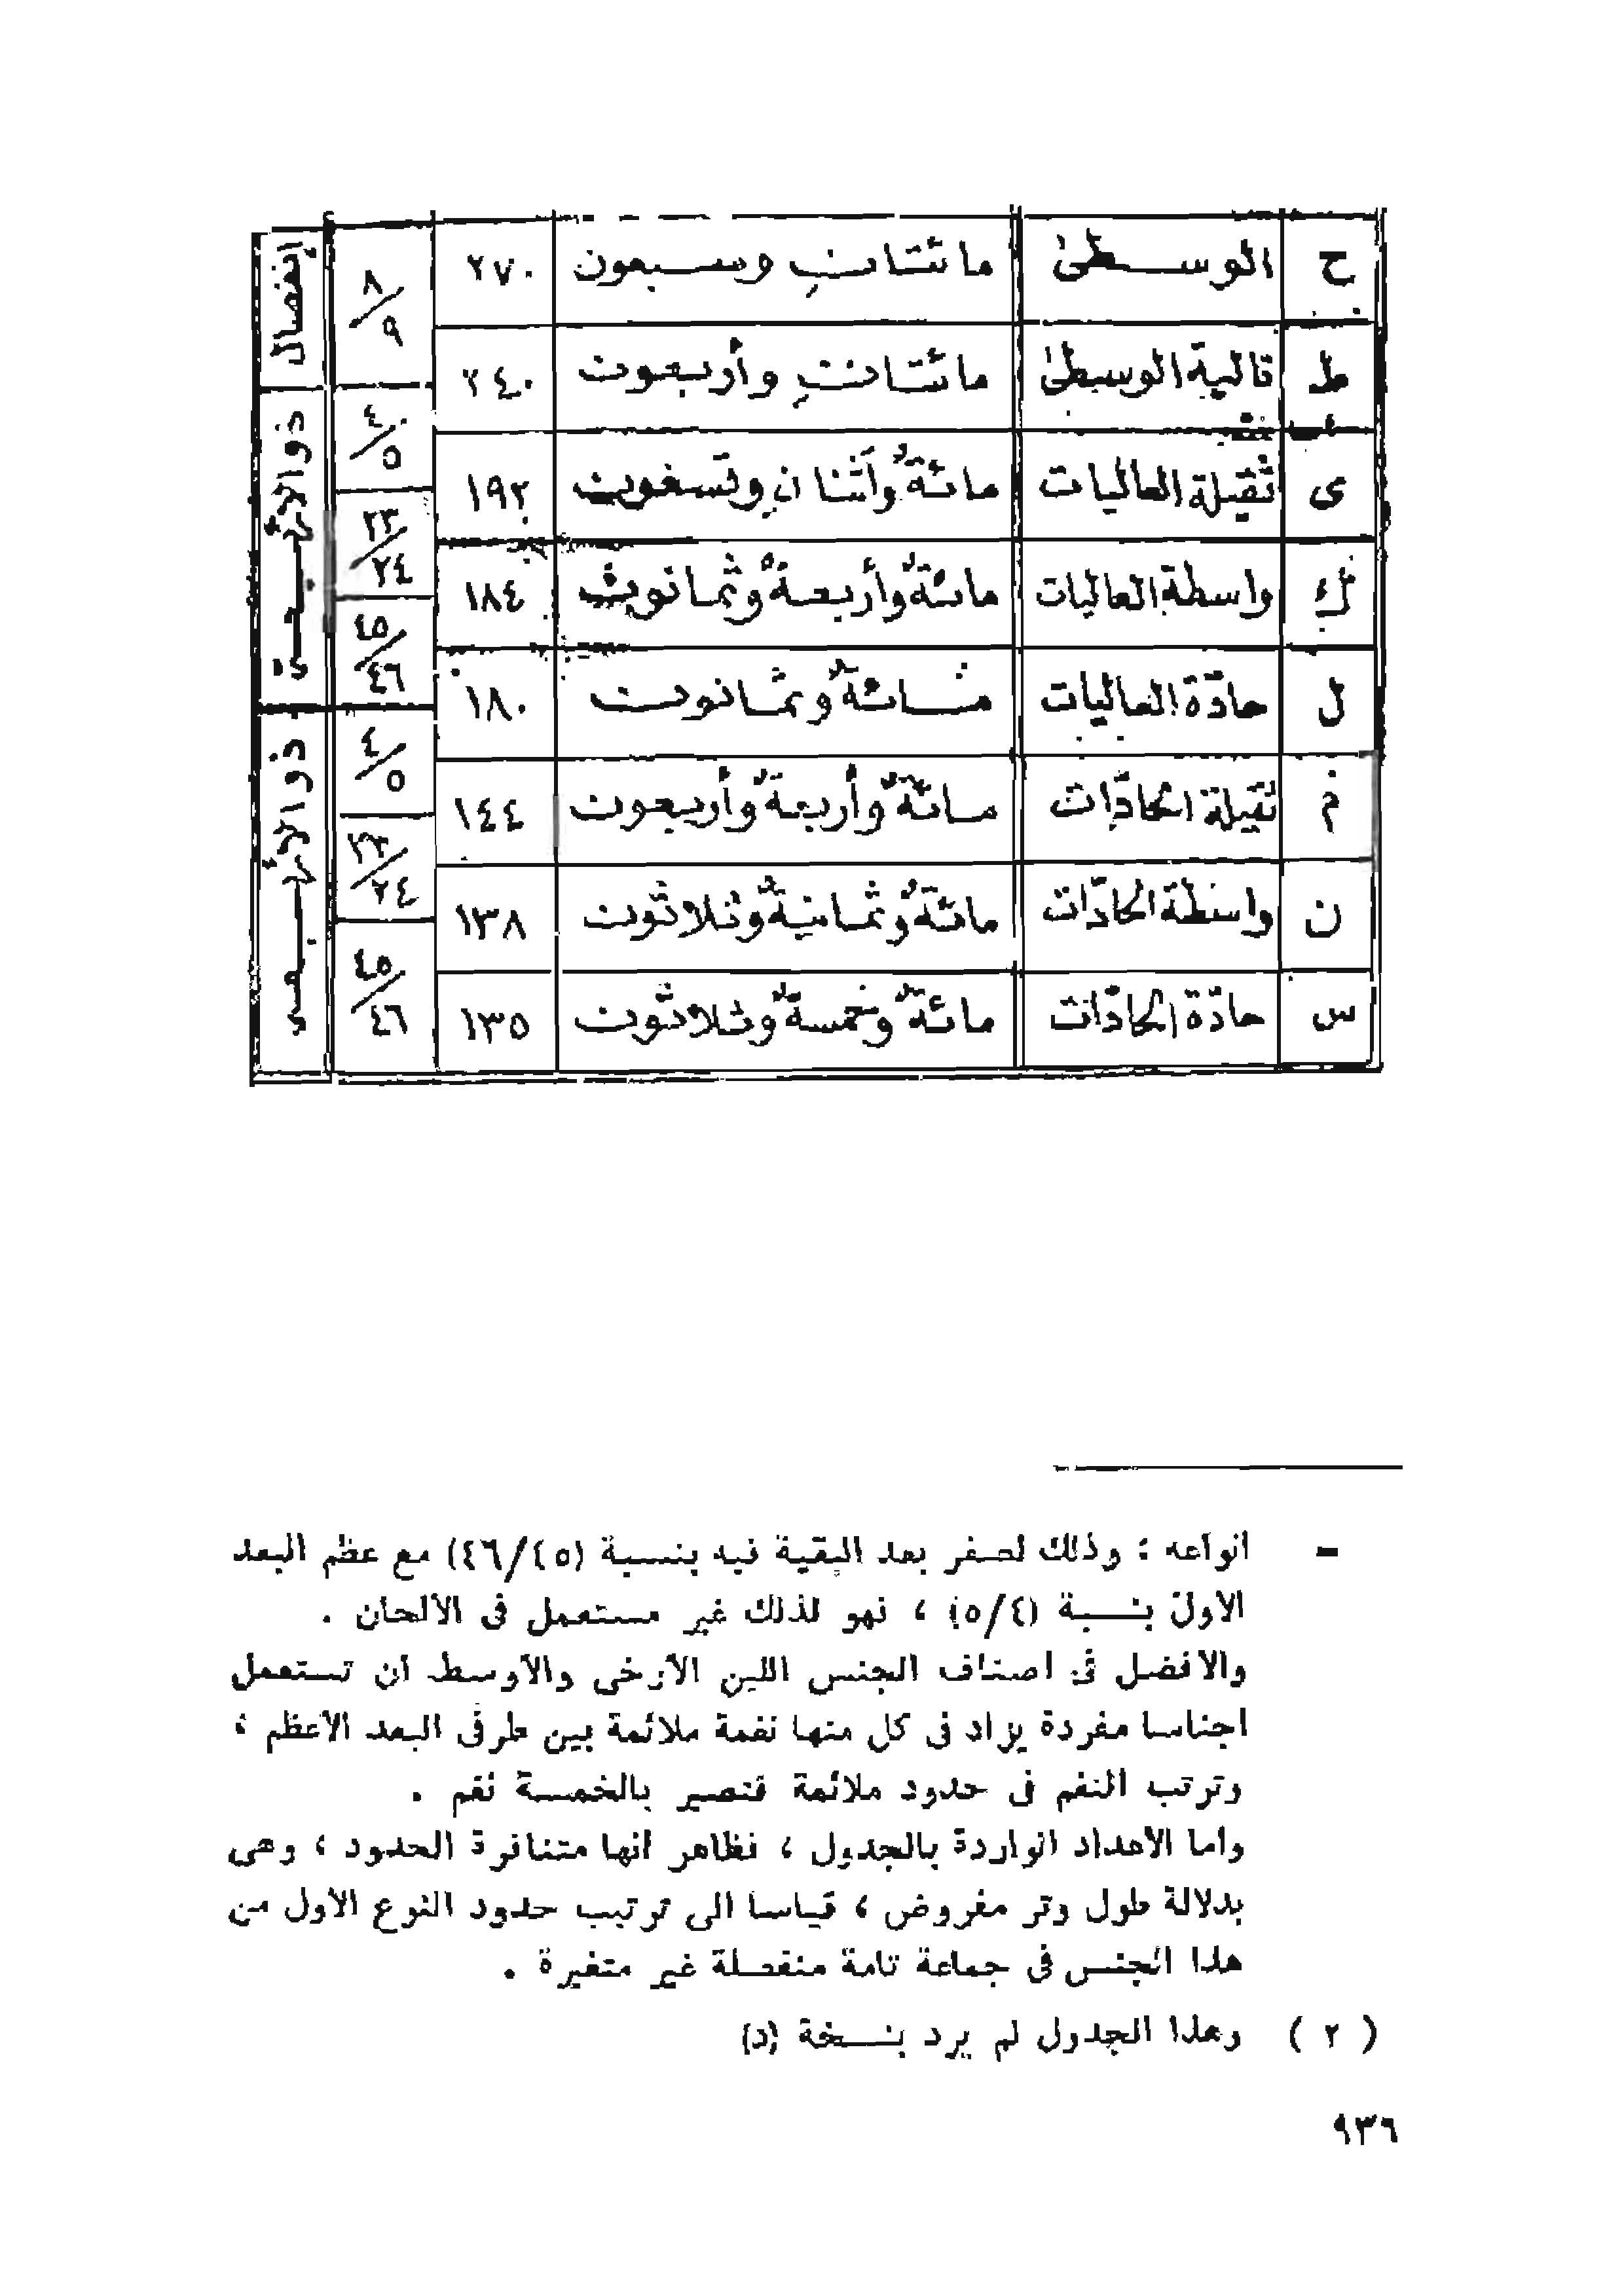 ح الوسطىٰ مائتانِ وسبعون ٢٧٠ ٨/٩ إنفصال
ط تالية الوسطىٰ مائتانِ وأربعون ٢٤٠
ى ثقيلة العاليات مائةٌ وآثنانِ وتسعون ١٩٢ ٤/٥ ذو الأربعة
ك واسطة العاليات مائةٌ وأربعةٌ وثمانون ١٨٤ ٢٣/٢٤
ل حادّة العاليات مائةٌ وثمانون ١٨٠ ٤٥/٤٦
م ثقيلة الحادّات مائةٌ وأربعةٌ وأربعون ١٤٤ ٤/٥ ذو الأربعة
ن واسطة الحادّات مائةٌ وثمانيةٌ وثلاثون ١٣٨ ٢٣/٢٤
س حادّة الحادّات مائةٌ وخمسةٌ وثلاثون ١٣٥ ٤٥/٤٦
- أنواعه : وذلك لصغر بعد البقية فيه بنسبة (٤٦/٤٥) مع عظم البعد
الأول بنسبة (٥/٤) ، فهو لذلك غير مستعمل فى الألحان .
والأفضل فى أصناف الجنس اللين الأرخى والأوسط أن تستعمل
أجناسا مفردة يزاد فى كل منها نغمة ملائمة بين طرفى البعد الأعظم ،
وترتب النغم فى حدود ملائمة فتصير بالخمسة نغم .
وأما الأعداد الواردة بالجدول ، فظاهر أنها متنافرة الحدود ، وهى
بدلالة طول وتر مفروض ، قياسا الى ترتيب حدود النوع الأول من
هذا الجنس فى جماعة تامة منفصلة غير متغيرة .
( ٢ ) وهذا الجدول لم يرد بنسخة (د)
٩٣٦